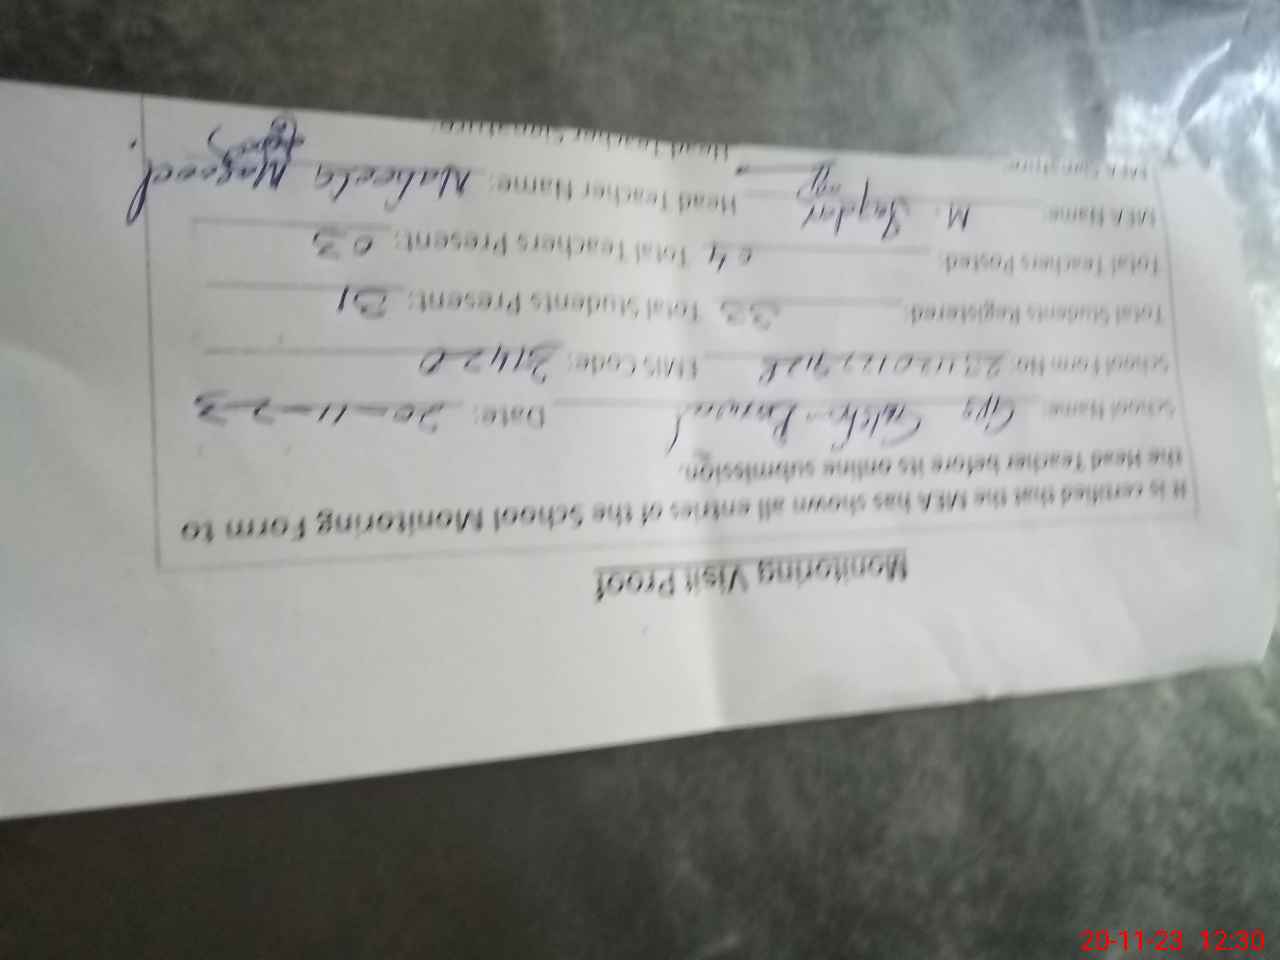 Monitoring Visit Proof
It is certified that the MEA has shown all entries of the School Monitoring Form to
the Head Teacher before its online submission.
School Name: GPS Date: 20-11-23
School Form No: EMIS Code:
Total Students Registered: 33 Total Students Present: 31
Total Teachers Posted: 04 Total Teachers Present: 03
MEA Name: M. Head Teacher Name: Nabeela Maqsood
MEA Signature: Head Teacher Signature:
20-11-23 12:30